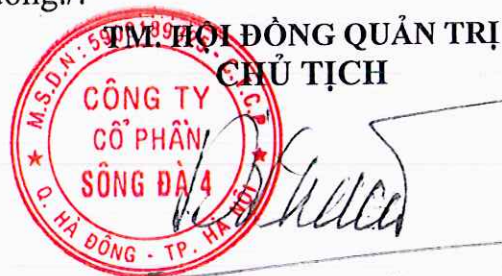 TM. HỘI ĐỒNG QUẢN TRỊ
CHỦ TỊCH
M.S.D.N: C.T.C.P
CÔNG TY
CỔ PHẦN
SÔNG ĐÀ 4
Q. HÀ ĐÔNG - TP. HÀ NỘI